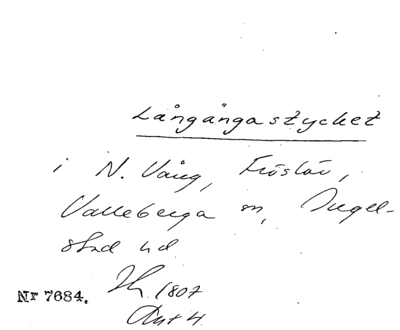 Långängastycket
i N. Vång, Fröslöv,
Valleberga sn, Ingel-
stad hd
1807
Akt 4.
Nr 7684.